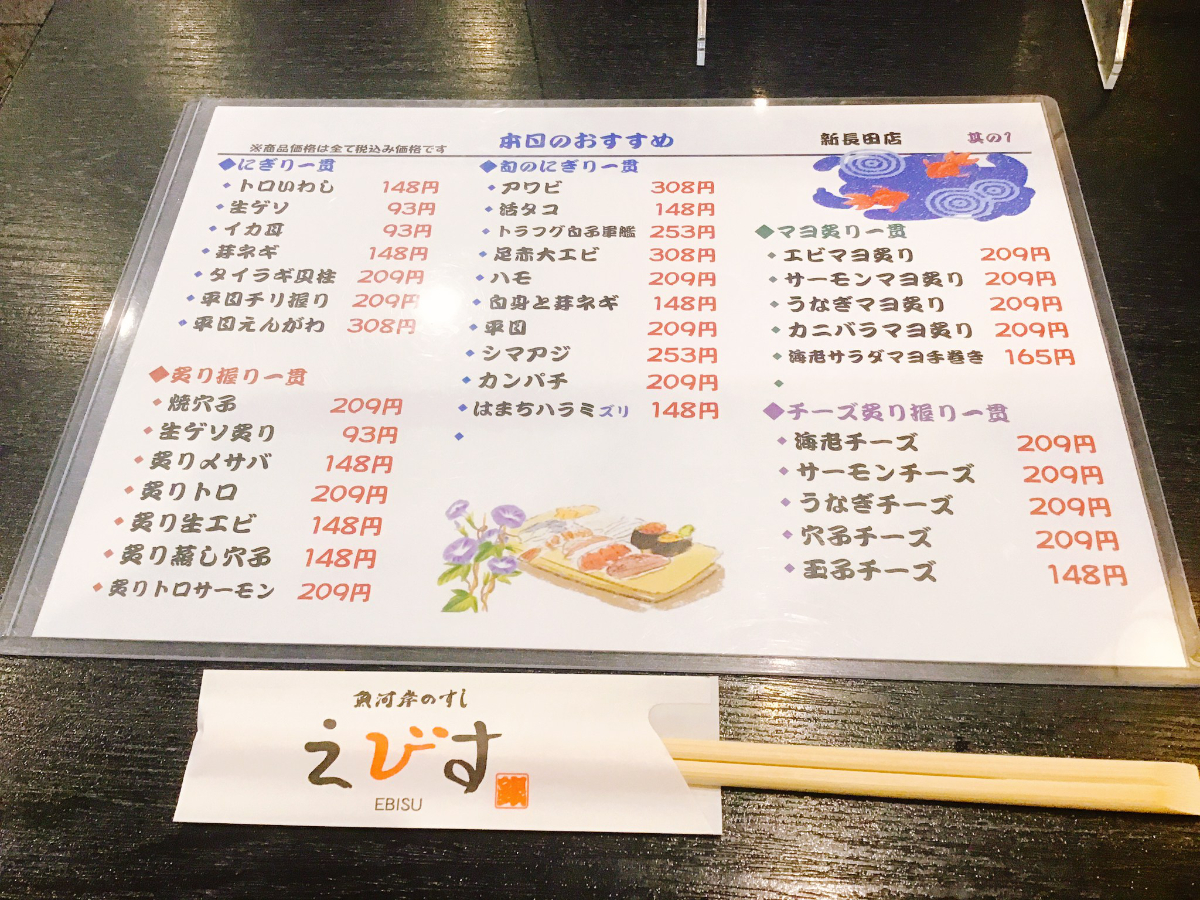 ※商品価格は全て税込み価格です
本日のおすすめ
新長田店
其の1
◆にぎり一貫
トロいわし 148円
生ゲソ 93円
イカ耳 93円
芽ネギ 148円
タイラギ貝柱 209円
平目チリ握り 209円
平目えんがわ 308円
◆炙り握り一貫
焼穴子 209円
生ゲソ炙り 93円
炙り〆サバ 148円
炙りトロ 209円
炙り生エビ 148円
炙り蒸し穴子 148円
炙りトロサーモン 209円
◆旬のにぎり一貫
アワビ 308円
活タコ 148円
トラフグ白子軍艦 253円
足赤大エビ 308円
ハモ 209円
白身と芽ネギ 148円
平目 209円
シマアジ 253円
カンパチ 209円
はまちハラミズリ 148円
◆マヨ炙り一貫
エビマヨ炙り 209円
サーモンマヨ炙り 209円
うなぎマヨ炙り 209円
カニバラマヨ炙り 209円
海老サラダマヨ手巻き 165円
◆チーズ炙り握り一貫
海老チーズ 209円
サーモンチーズ 209円
うなぎチーズ 209円
穴子チーズ 209円
玉子チーズ 148円
魚河岸のすし
えびす
EBISU